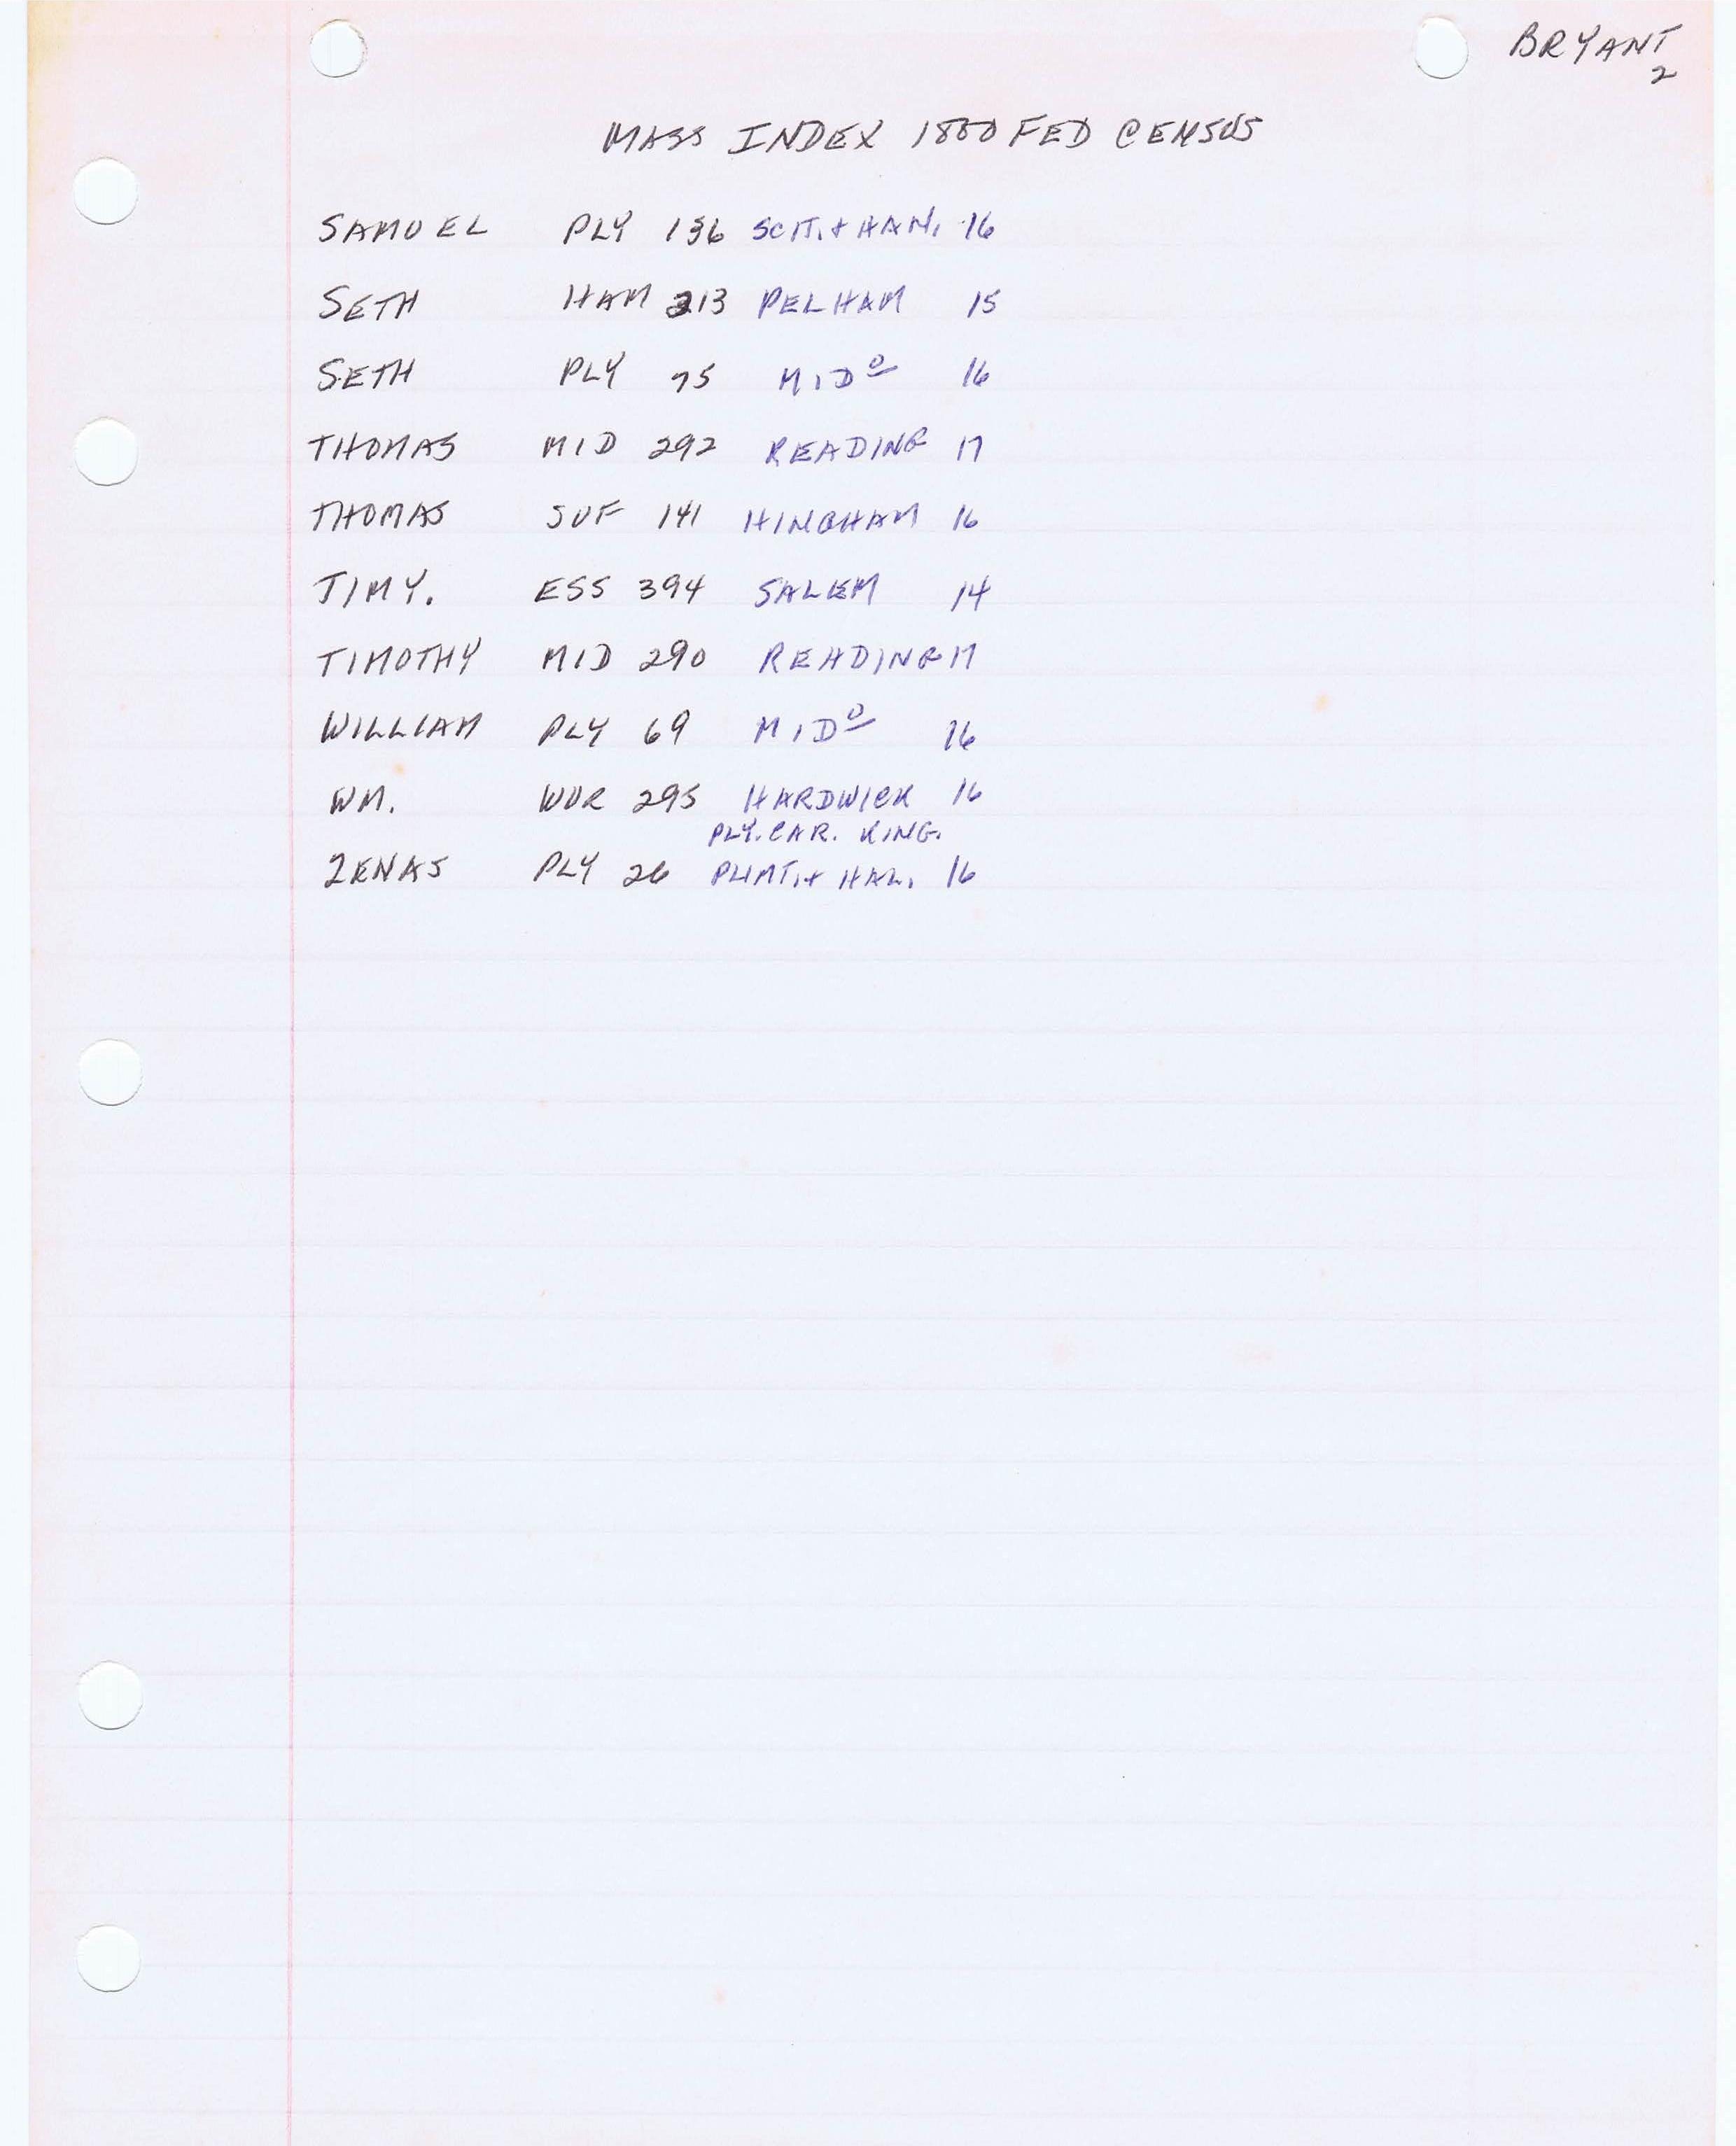 BRYANT
2
MASS INDEX 1800 FED CENSUS
SAMUEL PLY 136 SCIT. + HAN. 16
SETH HAM 213 PELHAM 15
SETH PLY 75 MIDº 16
THOMAS MID 292 READING 17
THOMAS SUF 141 HINGHAM 16
TIMY. ESS 394 SALEM 14
TIMOTHY MID 290 READING 17
WILLIAM PLY 69 MIDº 16
WM. WOR 295 HARDWICK 16
PLY. CAR. KING.
ZENAS PLY 26 PLIMT. + HAL. 16